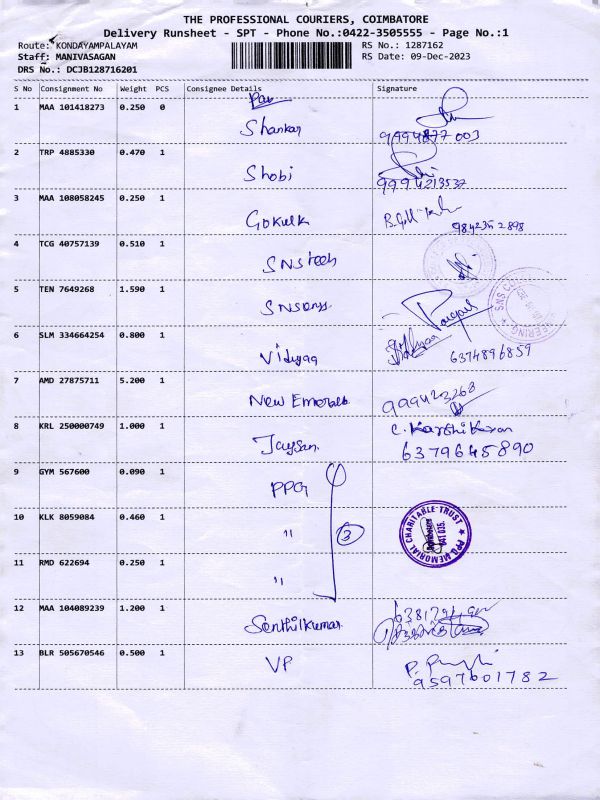 THE PROFESSIONAL COURIERS, COIMBATORE
Delivery Runsheet - SPT - Phone No.:0422-3505555 - Page No.:1
Route: KONDAYAMPALAYAM RS No.: 1287162
Staff: MANIVASAGAN RS Date: 09-Dec-2023
DRS No.: DCJB128716201
S No Consignment No Weight PCS Consignee Details Signature
1 MAA 101418273 0.250 0 Shankar 003
2 TRP 4885330 0.470 1 Shobi 9994213537
3 MAA 108058245 0.250 1 Gokulk 9842352898
4 TCG 40757139 0.510 1 SNS tech
5 TEN 7649268 1.590 1
6 SLM 334664254 0.800 1 Vidyaa 6374896859
7 AMD 27875711 5.200 1 New Emerald 999423268
8 KRL 250000749 1.000 1 Jaysan C. Karthikeyan
6379645890
9 GYM 567600 0.090 1 PPG
10 KLK 8059084 0.460 1 " 3
PPG MEMORIAL CHARITABLE TRUST
11 RMD 622694 0.250 1 "
12 MAA 104089239 1.200 1 Senthilkumar
13 BLR 505670546 0.500 1 VP
9597601782